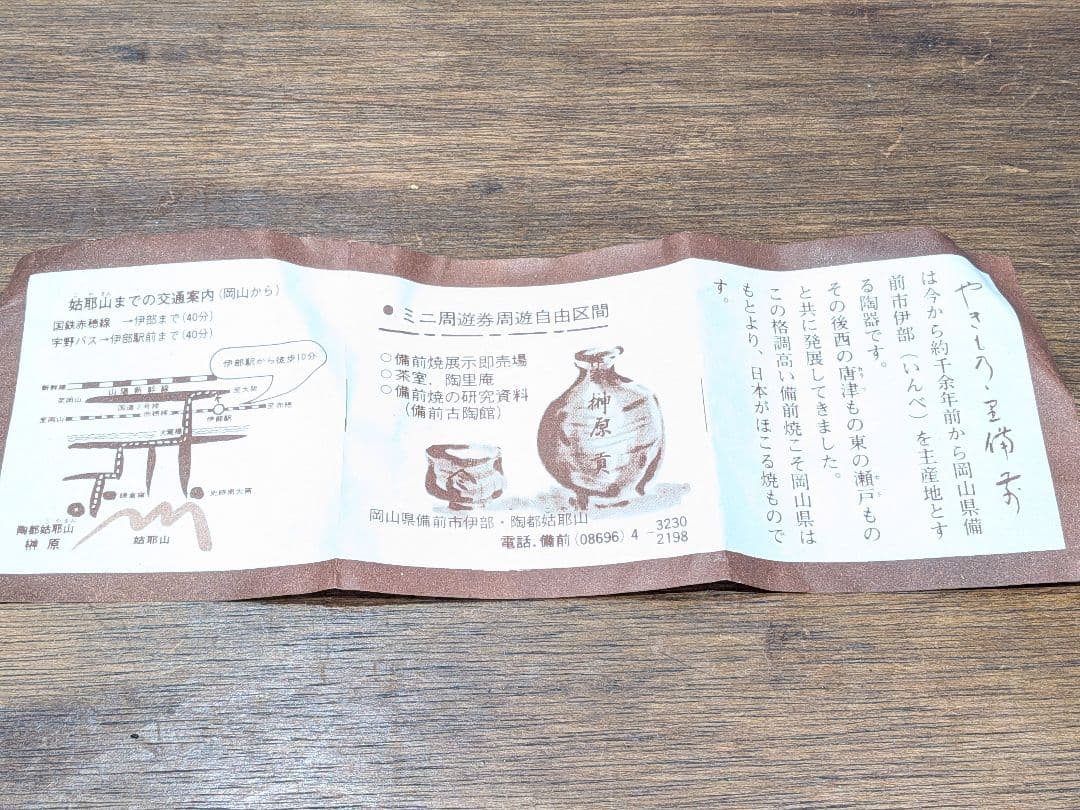 やきもの、里備前
は今から約千余年前から岡山県備
前市伊部（いんべ）を主産地とす
る陶器です。
その後西の唐津もの東の瀬戸もの
と共に発展してきました。
この格調高い備前焼こそ岡山県は
もとより、日本がほこる焼もので
す。
●ミニ周遊券周遊自由区間
○備前焼展示即売場
○茶室．陶里庵
○備前焼の研究資料
（備前古陶館）
榊原貢
岡山県備前市伊部・陶都姑耶山
電話．備前（08696）4－3230
2198
姑耶山までの交通案内（岡山から）
国鉄赤穂線　→伊部まで（40分）
宇野バス→伊部駅前まで（40分）
伊部駅から徒歩10分
新幹線
山陽新幹線
至岡山
至大阪
国道2号線
至岡山
赤穂線
伊部駅
至赤穂
陶都姑耶山
榊原
姑耶山